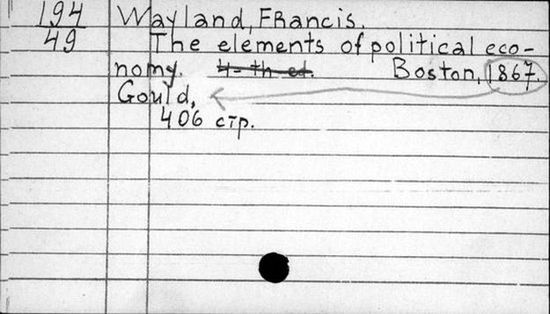 194 Wayland, FRancis.
49 The elements of political eco-
nomy. 4-th ed. Boston, 1867.
Gould,
406 стр.